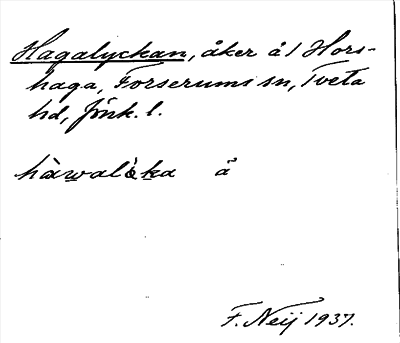 Hagalyckan, åker å 1 Hors-
haga, Forserums sn, Tveta
hd, Jönk. l.
hàwalò̀ka å
F. Neij 1937.